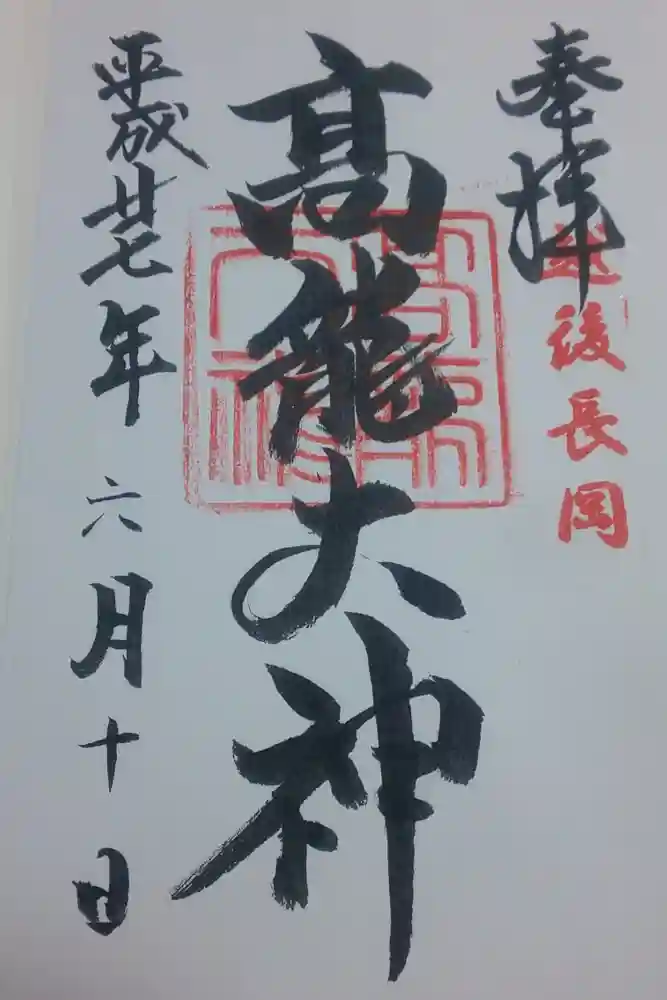 奉拝
越後長岡
高龍大神
平成廿七年六月十日